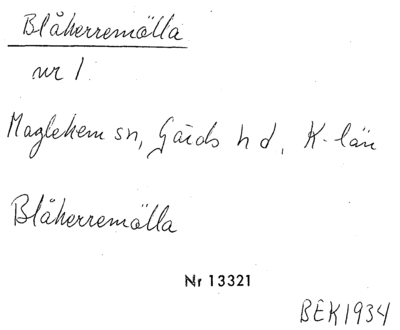 Blåherremölla
nr 1.
Maglehem sn, Gärds hd, K-län
Blåherremölla
Nr 13321
BEK1934